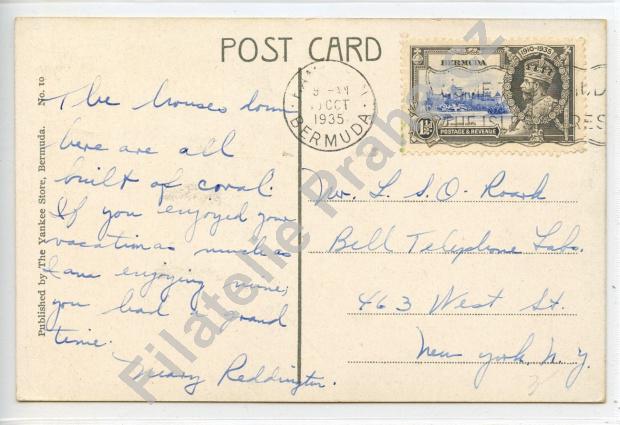 POST CARD
Published by The Yankee Store, Bermuda. No. 10
The houses down
here are all
built of coral.
If you enjoyed your
vacation as much as
I am enjoying mine,
you had a grand
time.
Mary Reddington.
9 AM
OCT
1935
BERMUDA
1910-1935
BERMUDA
POSTAGE & REVENUE
1½
L. S. O.
Bell Telephone Labs.
463 West St.
New York, N.Y.
Filatelie Praha